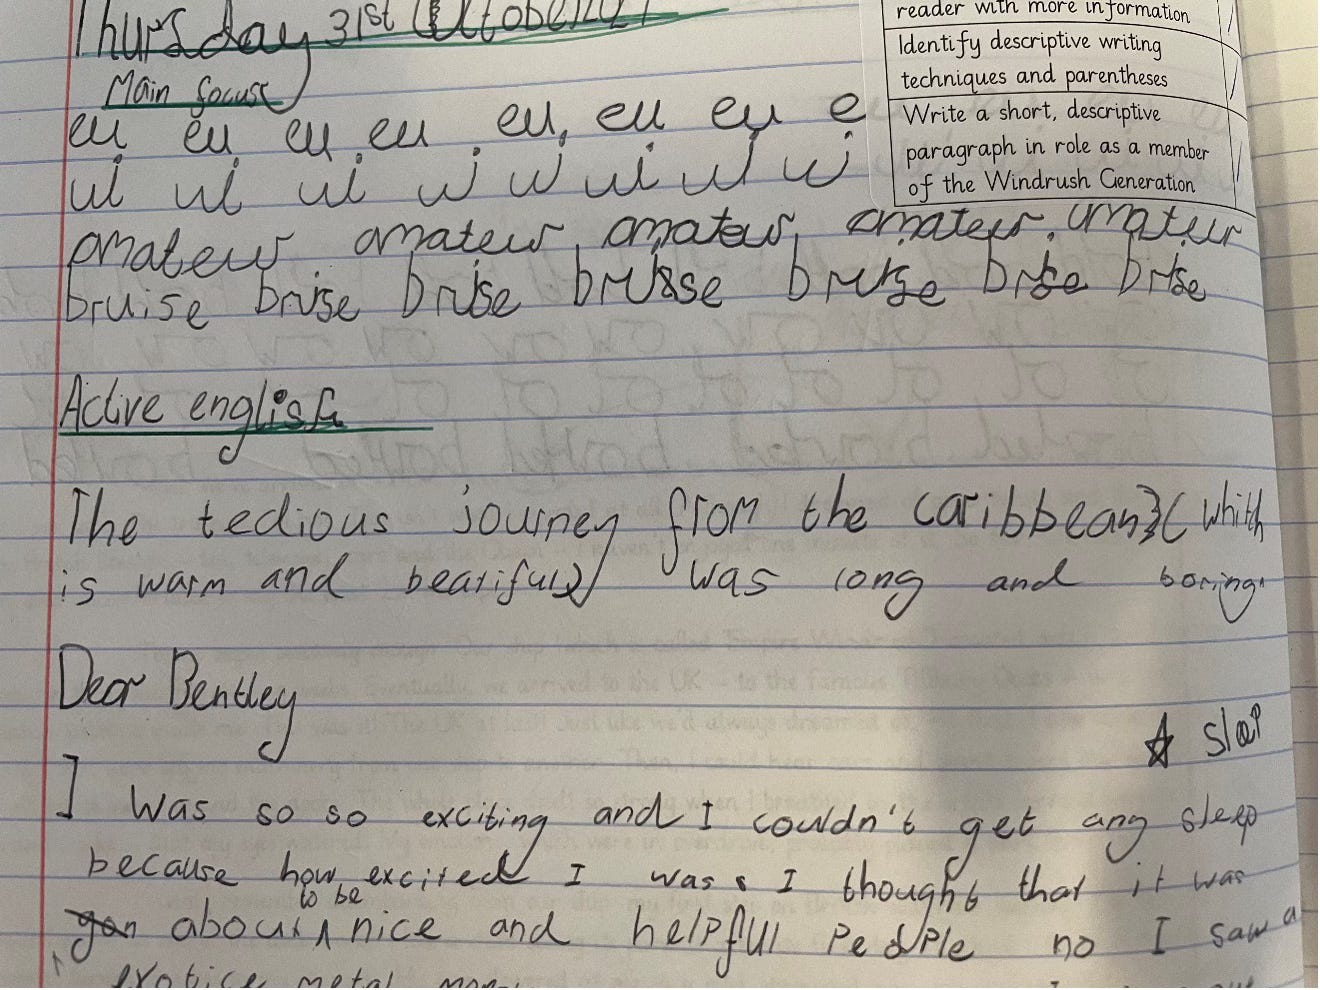 Thursday 31st October
reader with more information
Identify descriptive writing
techniques and parentheses
Write a short, descriptive
paragraph in role as a member
of the Windrush Generation
Main focus
eu eu eu eu eu, eu eu e
ui ui ui ui ui ui ui ui
amateur amateur, amateur, amateur, amateur
bruise bruise bruise bruise bruise bruise bruise
Active english
The tedious journey from the caribbean (whith
is warm and beatiful) was long and boring.
Dear Bentley
☆ slep
I was so so exciting and I couldn't get any sleep
because how excited I was I thought that it was
to be
about nice and helpful people no I saw a
metal